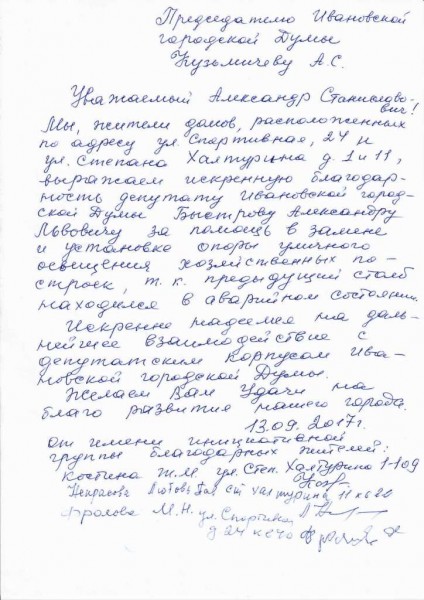 Председателю Ивановской
городской Думы
Кузьмичеву А.С.
Уважаемый Александр Станиславо-
вич!
Мы, жители домов, расположенных
по адресу ул. Спортивная, 24 и
ул. Степана Халтурина д. 1 и 11,
выражаем искреннюю благодар-
ность депутату Ивановской город-
ской Думы Быстрову Александру
Львовичу за помощь в замене
и установке опоры уличного
освещения хозяйственных по-
строек, т.к. предыдущий столб
находился в аварийном состоянии.
Искренне надеемся на даль-
нейшее взаимодействие с
депутатским корпусом Ива-
новской городской Думы.
Желаем Вам Удачи на
благо развития нашего города.
13.09.2017г.
от имени инициативной
группы благодарных жителей:
Костина Ж.М ул. Степ. Халтурина 1-109
Некрасова Любовь ст халтурина 11 кв 20
Фролова М.Н. ул. Спортивн
д 24 кв